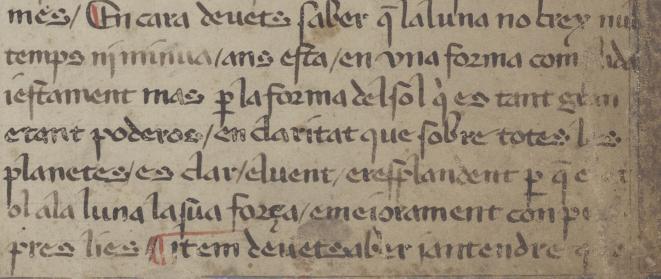 mes / En cara deuets saber q̄ la luna no crex nu
temps ni minua / ans esta / en vna forma com
iestament mas ꝑ la forma del sol q̇ es tant gran
e tant poderos / en claritat que sobre totes les
planetes / es clar / e luent / e resplandent ꝑ q̄ e
ol a la luna la sūa força / e meiorament con pe
pres li es ¶ item deuets aber j antendre que